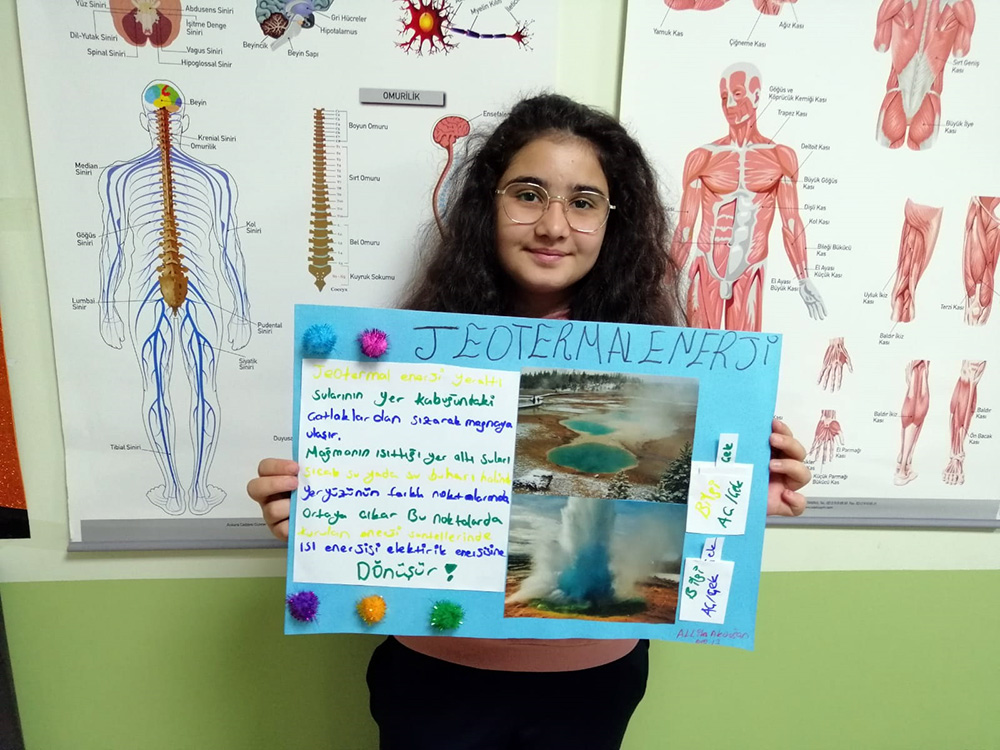 Yüz Siniri
Dil-Yutak Siniri
Spinal Siniri
Abdusens Siniri
İşitme Denge Siniri
Vagus Siniri
Hipoglossal Sinir
Beyincik
Beyin Sapı
Gri Hücreler
Hipotalamus
Miyelin Kılıf
Beyin
Kranial Siniri
Omurilik
Median Siniri
Kol Siniri
Göğüs Siniri
Lumbal Sinir
Pudental Siniri
Siyatik Siniri
Tibial Siniri
OMURİLİK
Boyun Omuru
Sırt Omuru
Bel Omuru
Kuyruk Sokumu
Coccyx
Yamuk Kas
Çiğneme Kası
Ağız Kası
Göğüs ve Köprücük Kemiği Kası
Trapez Kası
Deltoit Kası
Büyük Göğüs Kası
Dişli Kas
Kol Kası
Bileği Bükücü Kas
El Ayası Küçük Kası
El Ayası Büyük Kası
Sırt Geniş Kası
Büyük İlye Kası
Uyluk İkiz Kası
Terzi Kası
Baldır İkiz Kası
El Parmağı Kası
Küçük Parmağı Bükücü Kas
Baldır İkiz Kası
Ön Bacak Kası
JEOTERMAL ENERJİ
Jeotermal enerji yeraltı
sularının yer kabuğundaki
çatlaklardan sızarak magmaya
ulaşır.
Magmanın ısıttığı yer altı suları
sıcak su yada su buharı halinde
yeryüzünün farklı noktalarında
Ortaya çıkar Bu noktalarda
kurulan enerji santellerinde
ISI enerjisi elektirik enerjisine
Dönüşür!
Çek
Bilgi
Aç/Çek
Çek
Bilgi
Aç/Çek